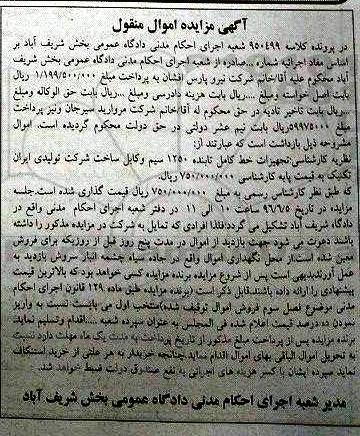 آگهی مزایده اموال منقول
در پرونده کلاسه ۹۵۰۴۹۹ شعبه اجرای احکام مدنی دادگاه عمومی بخش شریف آباد بر
اساس مفاد اجرائیه شماره ...صادره از شعبه اجرای احکام مدنی دادگاه عمومی بخش شریف
آباد محکوم علیه آقا/خانم شرکت نیرو پارس افشان به پرداخت مبلغ ۱/۱۹۹/۵۰۰/۰۰۰ ریال
بابت اصل خواسته ومبلغ ....ریال بابت هزینه دادرسی ومبلغ ...ریال بابت حق الوکاله ومبلغ
...ریال بابت تاخیر تادیه در حق محکوم له آقا/خانم شرکت مروارید سیرجان ونیز پرداخت
مبلغ ۵۹۹۷۵۰۰۰ریال بابت نیم عشر دولتی در حق دولت محکوم گردیده است. اموال
مشروحه ذیل بازداشت است که عبارتند از:
نظریه کارشناسی:تجهیزات خط کامل تابنده ۱۲۵۰ سیم وکابل ساخت شرکت تولیدی ایران
تکنیک به قیمت پایه کارشناسی ۷۵۰/۰۰۰/۰۰۰ ریال.
که طبق نظر کارشناس رسمی به مبلغ ۷۵۰/۰۰۰/۰۰۰ ریال قیمت گذاری شده است.جلسه
مزایده در تاریخ ۹۶/۶/۵ ساعت ۱۰ الی ۱۱ در دفتر شعبه اجرای احکام مدنی واقع در
دادگاه شریف آباد تشکیل می گردد؛لذا افرادی که تمایل به شرکت در مزایده مذکور را داشته
باشند دعوت می شود جهت بازدید از اموال در مدت پنج روز قبل از روزیکه برای فروش
معین شده است؛از محل نگهداری اموال واقع در جاده سیاه چشمه انبار سروش بازدید به
عمل آورند.بدیهی است پس از شروع مزایده برنده مزایده کسی خواهد بود که بالاترین قیمت
پیشنهادی را ارائه داده باشند.قابل ذکر است (برنده مزایده طبق ماده ۱۲۹ قانون اجرای احکام
مدنی موضوع فصل سوم فروش اموال توقیف شده)منتخب اول می بایست نسبت به واریز
نمودن ده درصد قیمت اعلام شده فی المجلس به عنوان سپرده شعبه ....اقدام وتسلیم نماید.
برنده مزایده پس از پرداخت مبلغ مذکور از تاریخ پرداخت به مدت یک ماه مهلت دارد نسبت
به تحویل اموال الباقی بهای اموال اقدام نماید چنانچه خریدار به هر علتی از خرید استنکاف
نماید سپرده ایشان با کسر هزینه های اجرایی به نفع صندوق دولت ضبط خواهد شد.
مدیر شعبه اجرای احکام مدنی دادگاه عمومی بخش شریف آباد